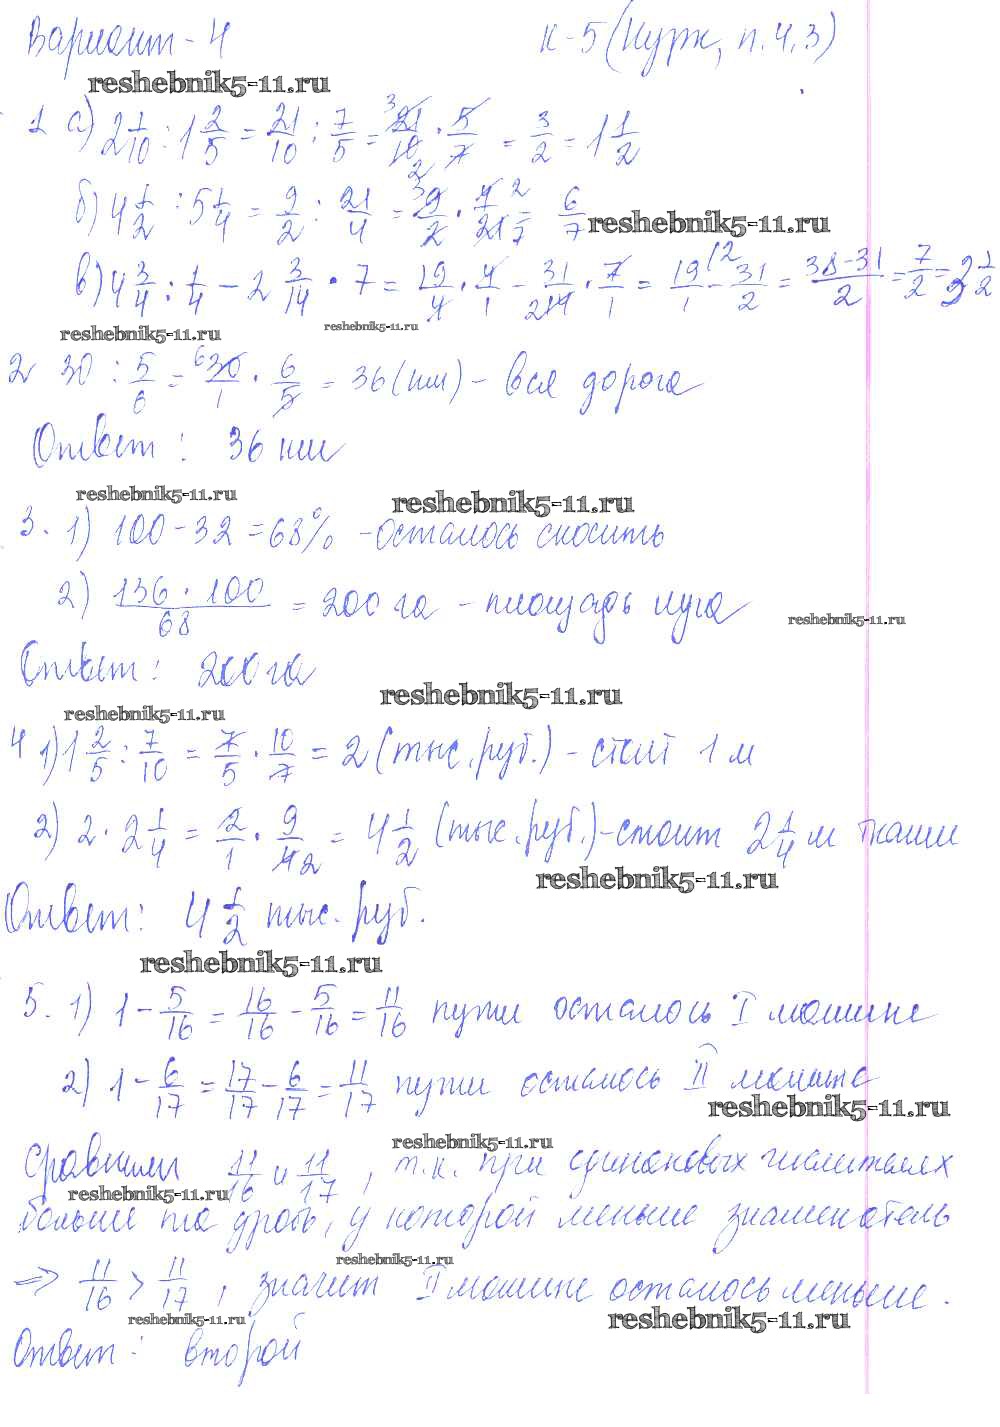 Вариант-4 К-5 (Нурк, п.4,3)
reshebnik5-11.ru
1 а) 2 1/10 : 1 2/5 = 21/10 : 7/5 = 21/10 · 5/7 = 3/2 = 1 1/2
б) 4 1/2 : 5 1/4 = 9/2 : 21/4 = 9/2 · 4/21 = 6/7
reshebnik5-11.ru
в) 4 3/4 : 1/4 - 2 3/14 · 7 = 19/4 · 4/1 - 31/14 · 7/1 = 19/1 - 31/2 = 38-31/2 = 7/2 = 3 1/2
reshebnik5-11.ru reshebnik5-11.ru
2 30 : 5/6 = 30/1 · 6/5 = 36 (км) - вся дорога
Ответ: 36 км
reshebnik5-11.ru reshebnik5-11.ru
3. 1) 100-32=68% -осталось скосить
2) 136 · 100/68 = 200 га - площадь луга
reshebnik5-11.ru
Ответ: 200 га
reshebnik5-11.ru
reshebnik5-11.ru
4 1) 1 2/5 : 7/10 = 7/5 · 10/7 = 2 (тыс. руб.) - стоит 1 м
2) 2 · 2 1/4 = 2/1 · 9/4 = 4 1/2 (тыс. руб.) - стоит 2 1/4 м ткани
reshebnik5-11.ru
Ответ: 4 1/2 тыс. руб.
reshebnik5-11.ru
5. 1) 1 - 5/16 = 16/16 - 5/16 = 11/16 пути осталось I машине
2) 1 - 6/17 = 17/17 - 6/17 = 11/17 пути осталось II машине
reshebnik5-11.ru
reshebnik5-11.ru
Сравним 11/16 и 11/17, т.к. при одинаковых числителях
reshebnik5-11.ru
больше та дробь, у которой меньше знаменатель
reshebnik5-11.ru
=> 11/16 > 11/17, значит II машине осталось меньше.
reshebnik5-11.ru reshebnik5-11.ru
Ответ: второй